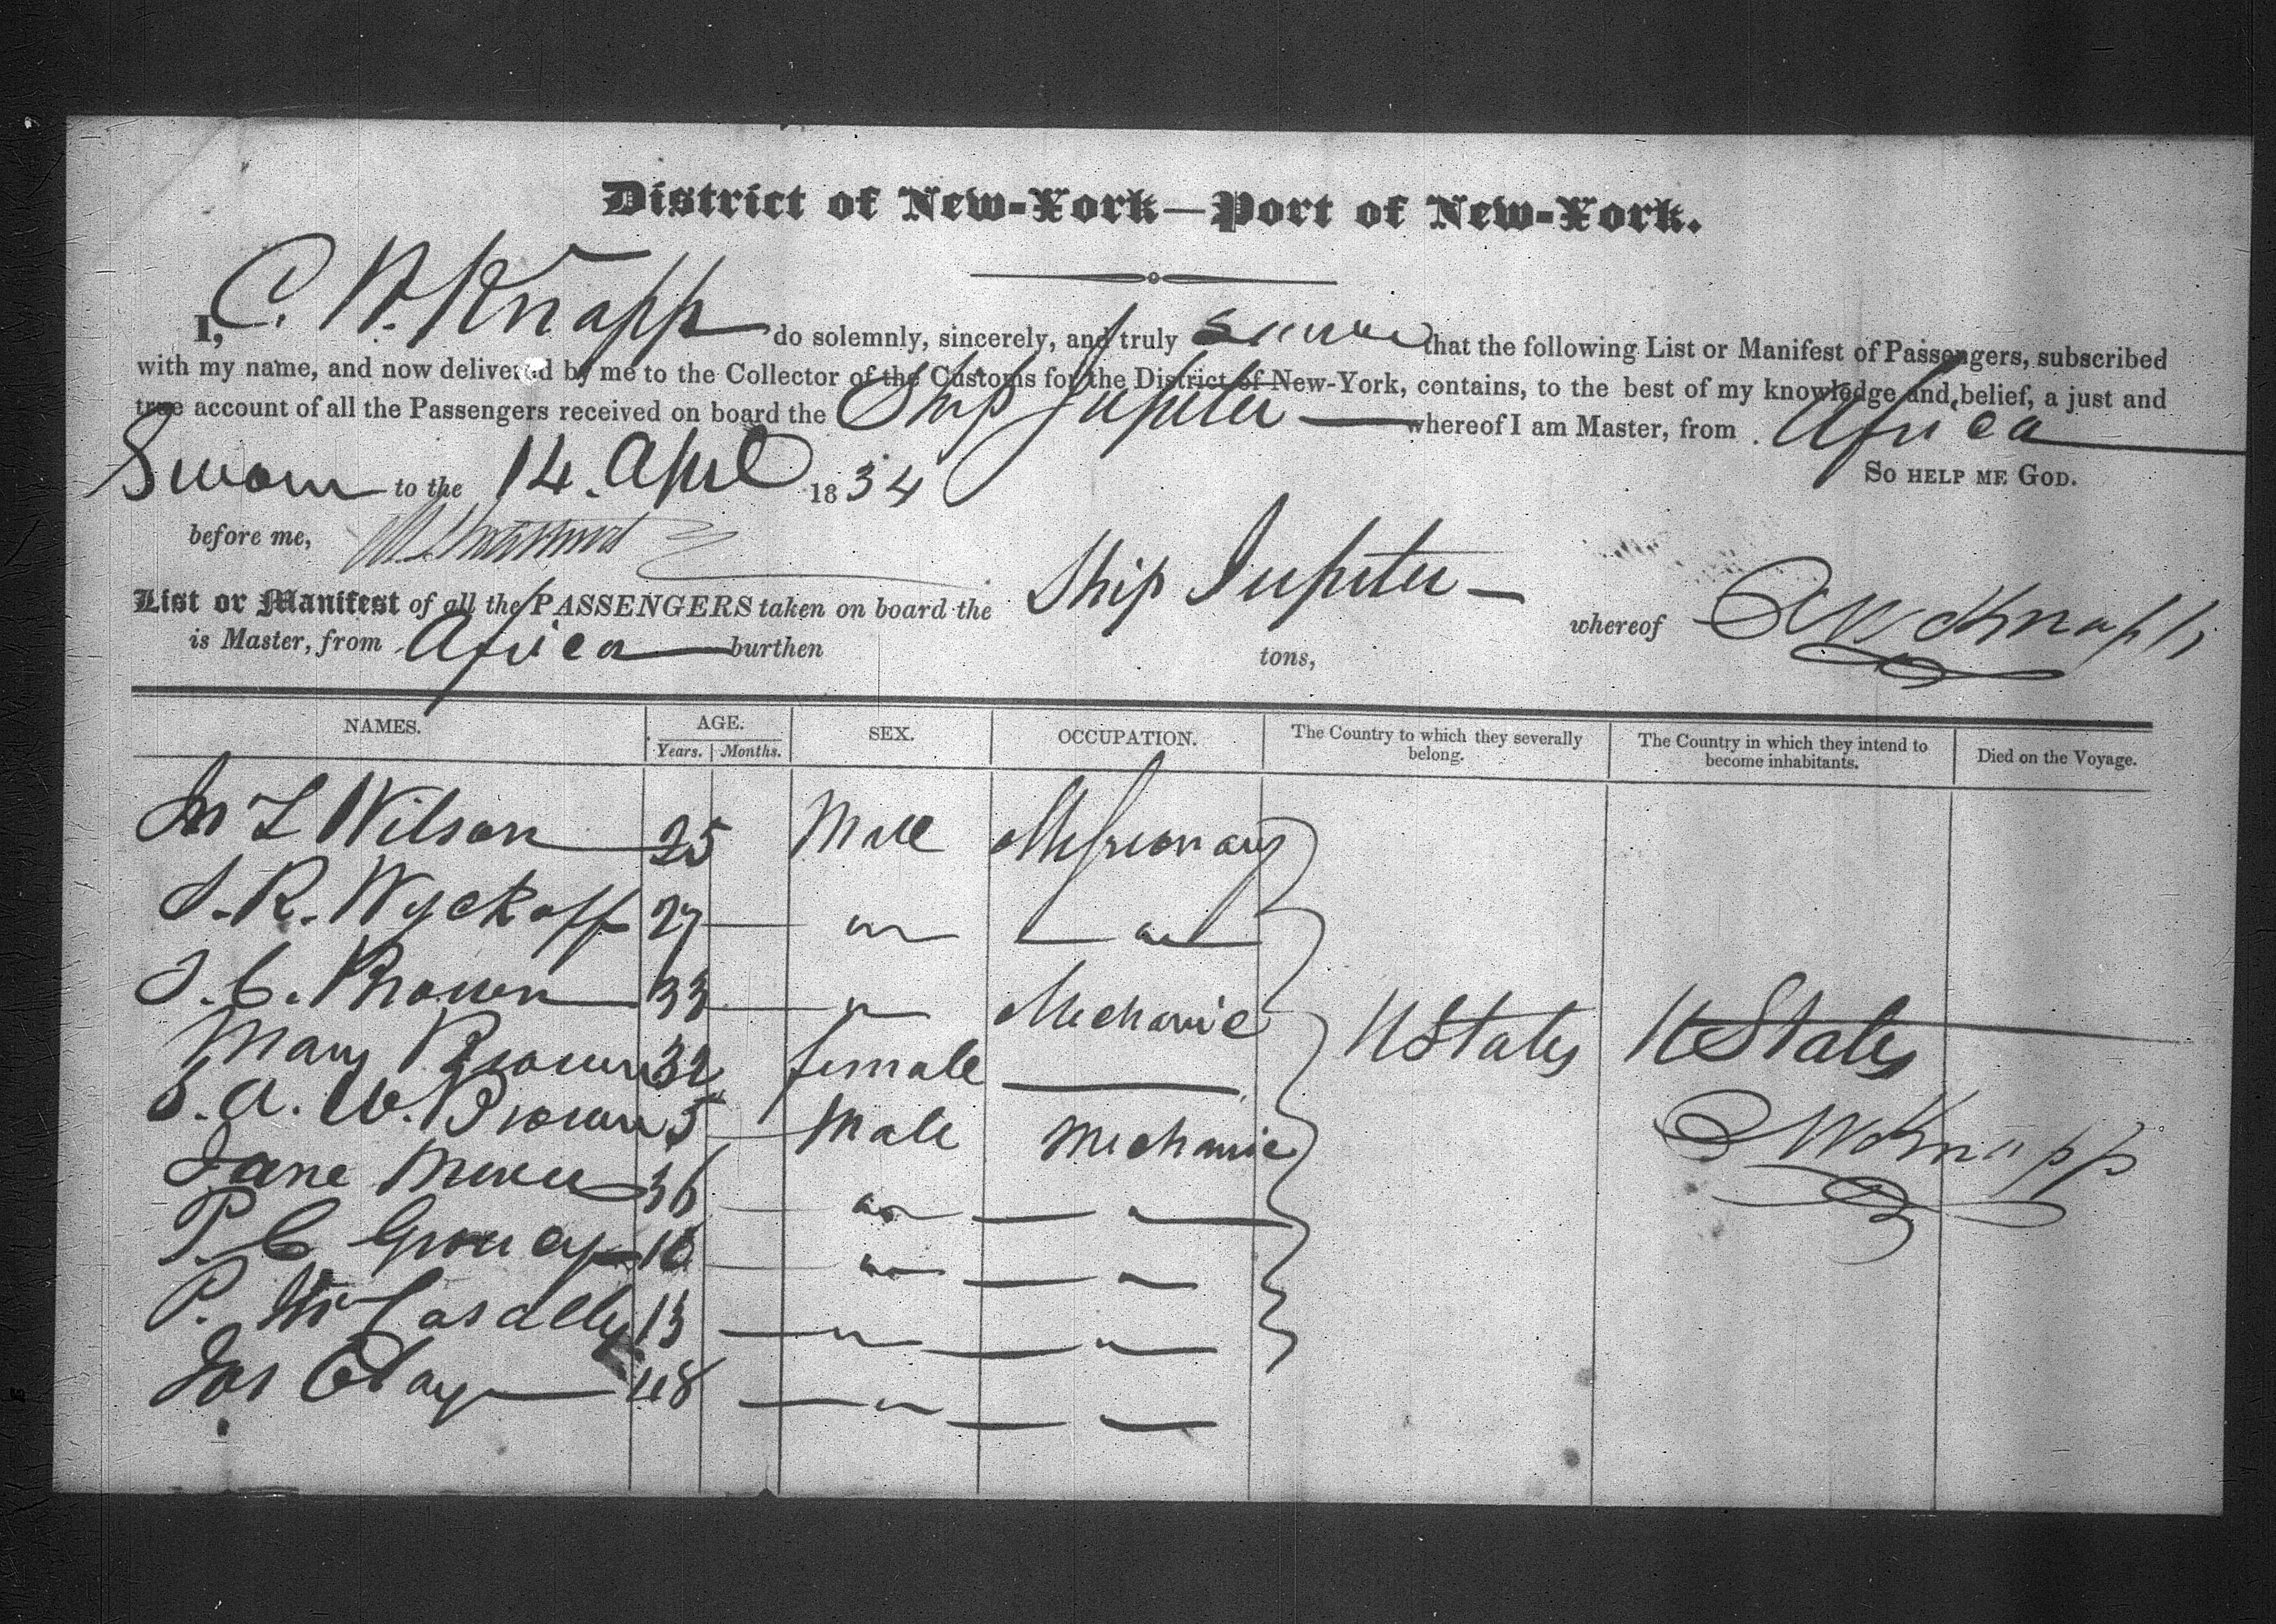 District of New-York—Port of New-York.
I, C. W. Knapp do solemnly, sincerely, and truly swear that the following List or Manifest of Passengers, subscribed
with my name, and now delivered by me to the Collector of the Customs for the District of New-York, contains, to the best of my knowledge and belief, a just and
true account of all the Passengers received on board the Ship Jupiter — whereof I am Master, from Africa
Sworn to the 14. April 1834 So help me God.
before me,
List or Manifest of all the PASSENGERS taken on board the Ship Jupiter — whereof C W Knapp
is Master, from Africa burthen tons,
NAMES. AGE. Years. Months. SEX. OCCUPATION. The Country to which they severally belong. The Country in which they intend to become inhabitants. Died on the Voyage.
Jn L Wilson 25 Male Missionary
S. R. Wyckoff 27 — " — — " —
J. C. Brown 33 — " — Mechanic
Mary Brown 32 female — U States U States
S. A. W. Brown 5 — Male Mechanic
C W Knapp
Jane 36 — " — — " —
P. C 18 — " — — " —
P. 13 — " — — " —
Jas Clay 48 — " — — —